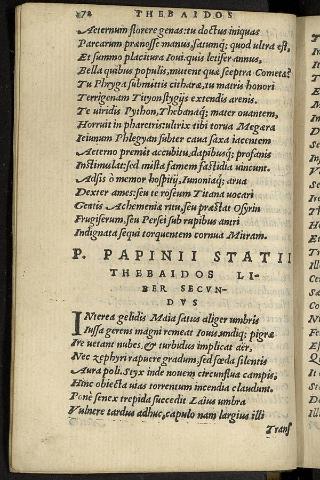 72 THEBAIDOS
Aeternum florere genas: tu doctus iniquas
Parcarum prænosse manus, fatumq; quod ultra est,
Et summo placitura Ioui. quis letifer annus,
Bella quibus populis, mutent quæ sceptra Cometæ.
Tu Phryga submittis citharæ, tu matris honori
Terrigenam Tityon stygijs extendis arenis.
Te uiridis Python, Thebanaq; mater ouantem,
Horruit in pharetris: ultrix tibi torua Megæra
Ieiunum Phlegyan subter caua saxa iacentem
Aeterno premit accubitu, dapibusq; profanis
Instimulat: sed mista famem fastidia uincunt.
Adsis ô memor hospitij, Iunoniaq; arua
Dexter ames: seu te roseum Titana uocari
Gentis Achemeniæ ritu, seu præstat Osyrin
Frugiferum, seu Persei sub rupibus antri
Indignata sequi torquentem cornua Mitram.
P. PAPINII STATII
THEBAIDOS LI-
BER SECVN-
DVS
INterea gelidis Maia satus aliger umbris
Iussa gerens magni remeat Iouis. undiq; pigræ
Ire uetant nubes, & turbidus implicat aër.
Nec zephyri rapuere gradum, sed fœda silentis
Aura poli. Styx inde nouem circunflua campis,
Hinc obiecta uias torrentum incendia claudunt.
Ponè senex trepida succedit Laius umbra
Vulnere tardus adhuc, capulo nam largius illi
Trans